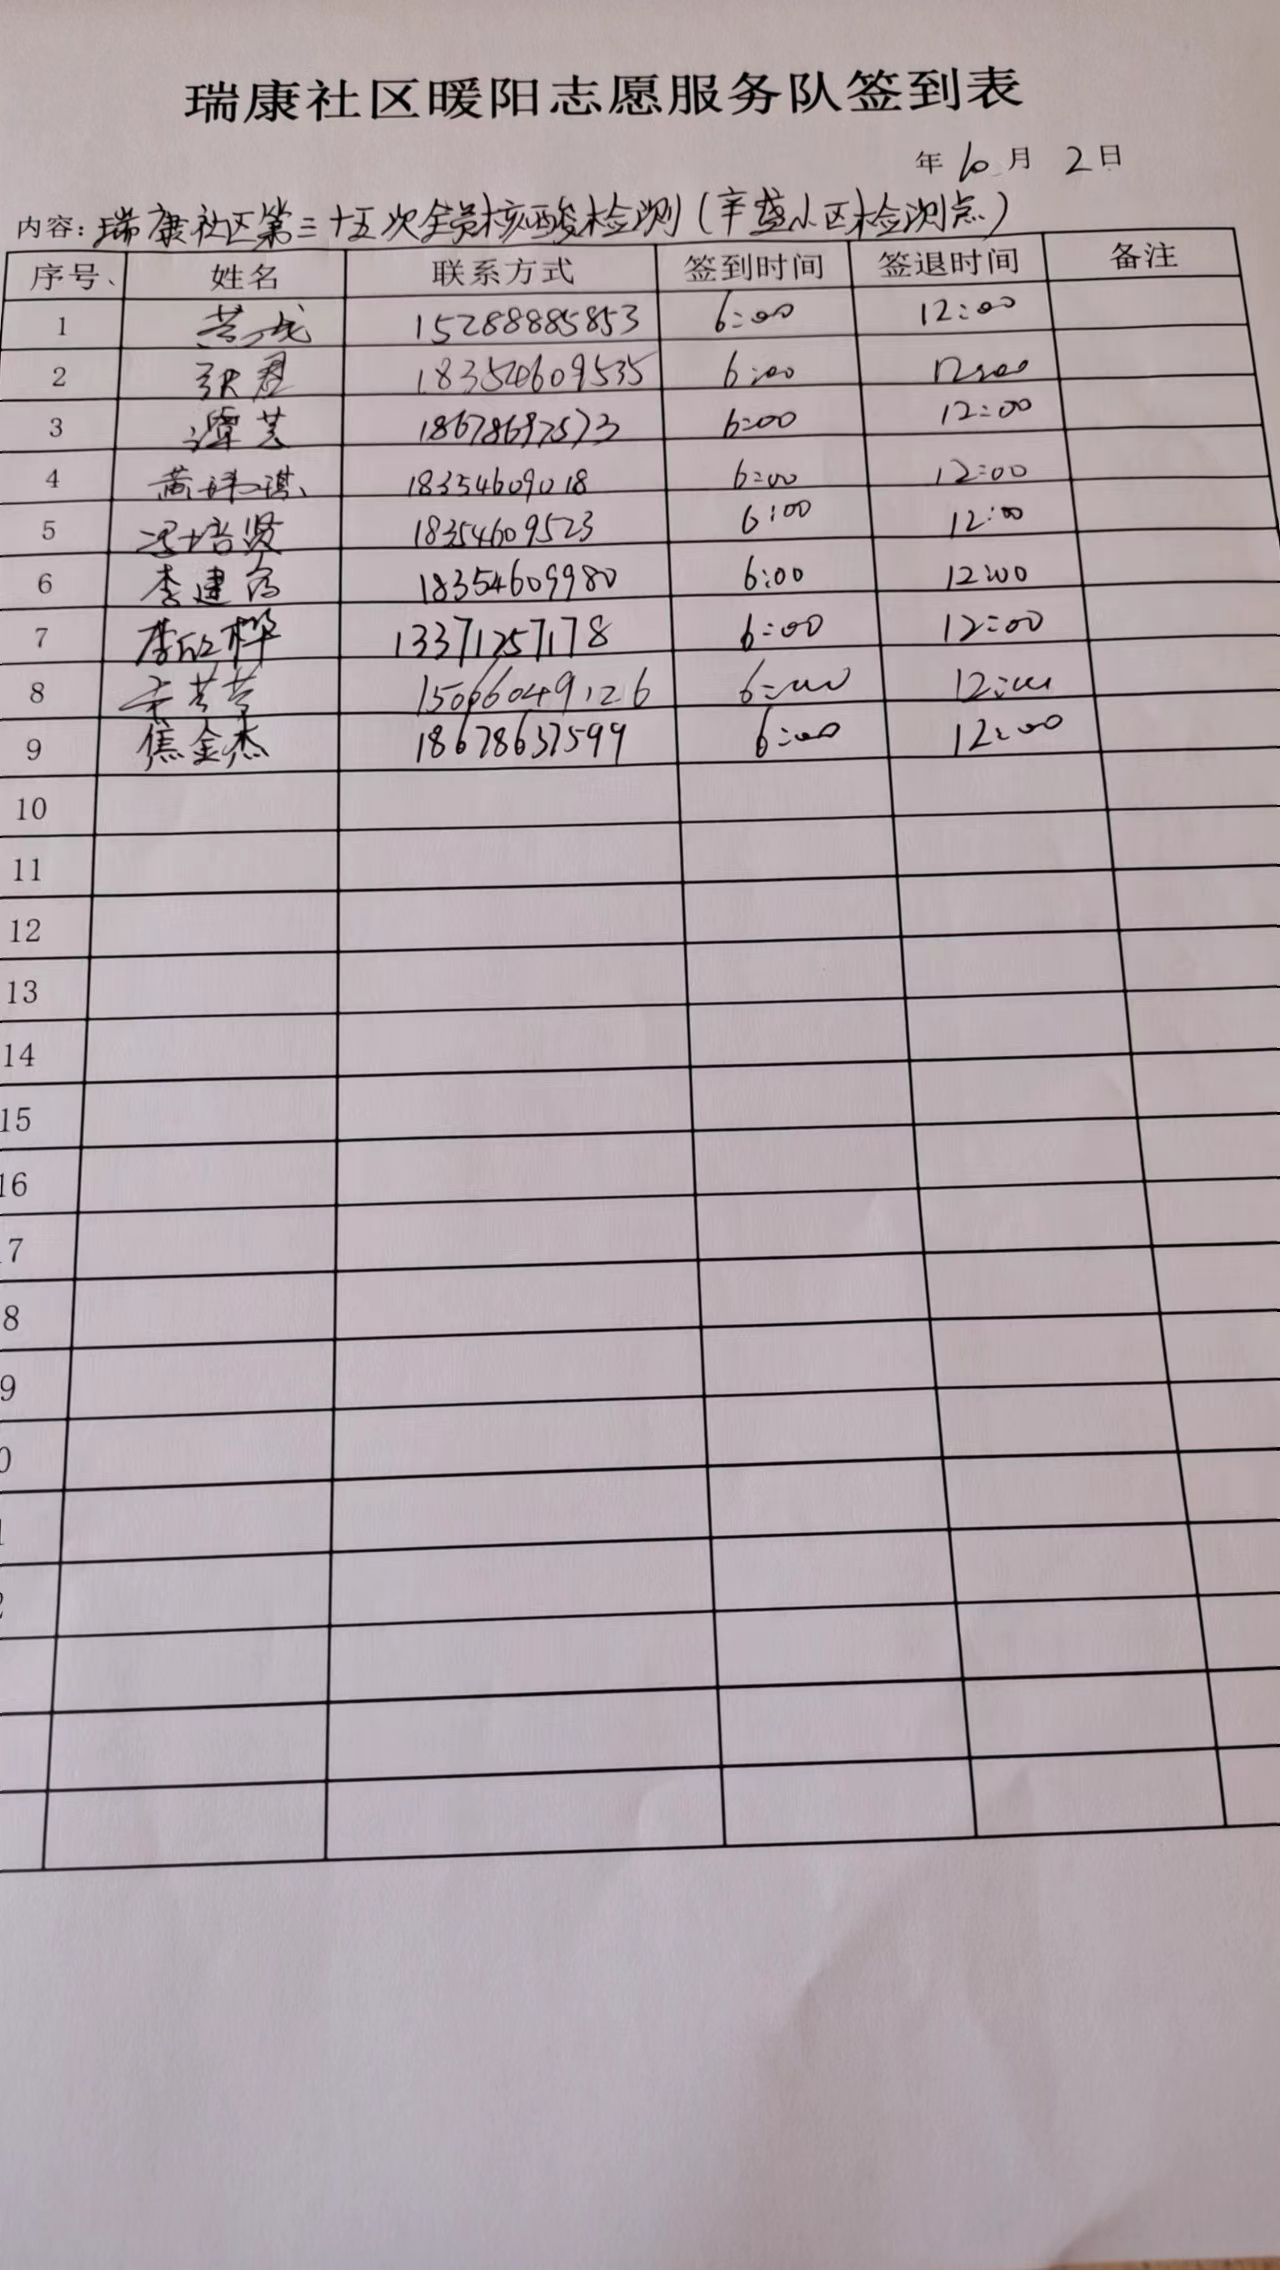 瑞康社区暖阳志愿服务队签到表
年 10 月 2 日
内容: 瑞康社区第三十五次全员核酸检测(辛盛小区检测点)
序号、 姓名 联系方式 签到时间 签退时间 备注
1 15288885853 6:00 12:00
2 张君 6:00 12:00
3 谭芸 18678697573 6:00 12:00
4 黄玮琪 18354609018 6:00 12:00
5 冯培贤 18354609523 6:00 12:00
6 李建 18354609980 6:00 12:00
7 李欣桦 13371257178 6:00 12:00
8 15066049126 6:00 12:00
9 焦金杰 18678637599 6:00 12:00
10
11
12
13
14
15
16
7
8
9
0
1
2